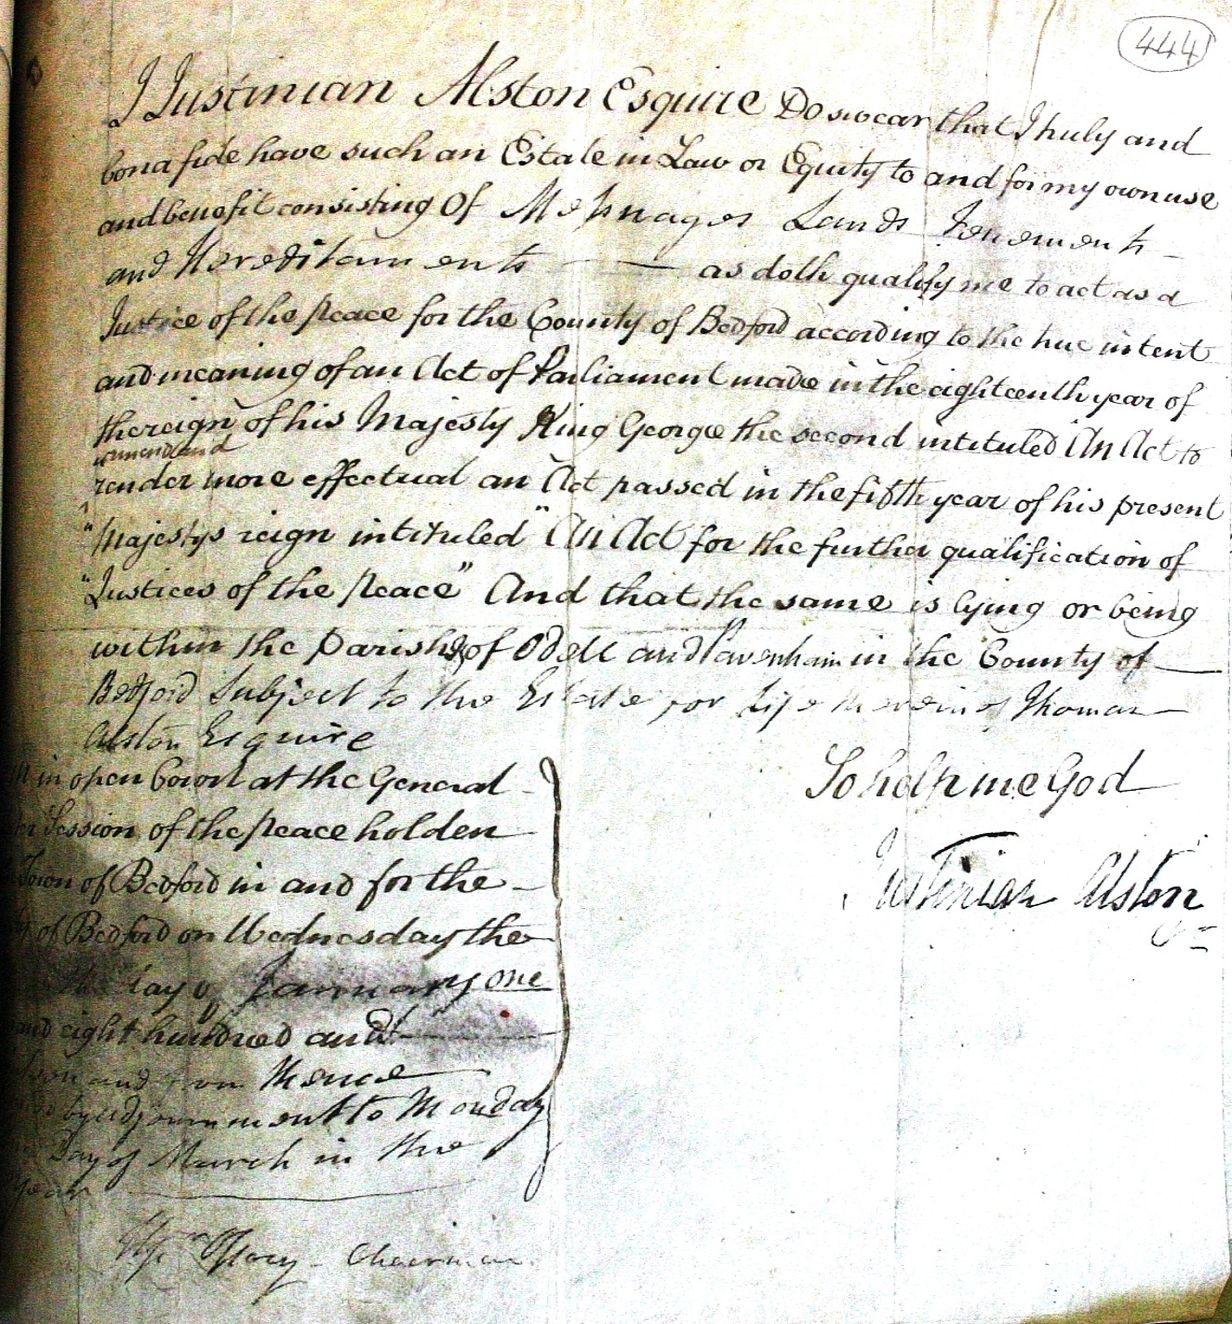 444
I Justinian Alston Esquire Do swear that I truly and
bona fide have such an Estate in Law or Equity to and for my own use
and benefit consisting Of Messuages Lands Tenements
and Hereditaments as doth qualify me to act as a
Justice of the Peace for the County of Bedford according to the true intent
and meaning of an Act of Parliament made in the eighteenth year of
the reign of his Majesty King George the second intituled An Act to
amend and
render more effectual an Act passed in the fifth year of his present
"Majestys reign intituled "An Act for the further qualification of
"Justices of the Peace" And that the same is lying or being
within the Parishes of Odell and Pavenham in the County of
Bedford Subject to the Estate for Life therein of Thomas
Alston Esquire
in open Court at the General
Session of the Peace holden
Town of Bedford in and for the
of Bedford on Wednesday the
day of January One
and eight hundred and
and from thence
by adjournment to Monday
Day of March in the
Year
So help me God
Justinian Alston
Ossory Chairman